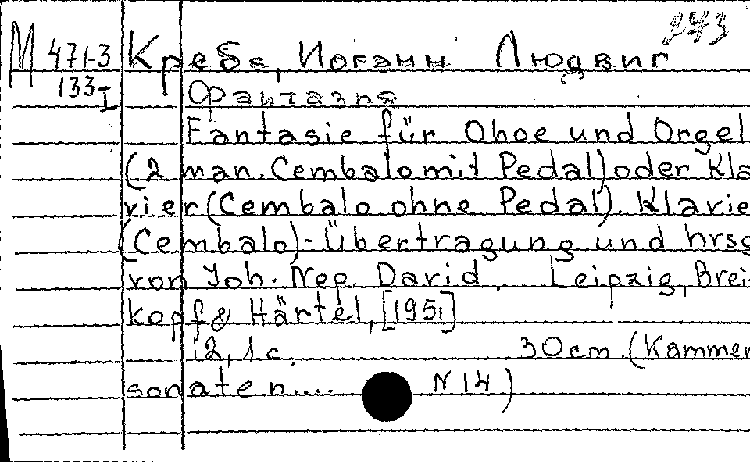 343
М 471-3 Кребс, Иоганн Людвиг
133-I Фантазия
Fantasie für Oboe und Orgel
(2 man. Cembalo mit Pedal) oder Kla
vier (Cembalo ohne Pedal). Klavie
(Cembalo)-Übertragung und hrsg
von Joh. Nep. David. Leipzig, Brei
kopf & Härtel, [1951]
12, 1 c. 30 cm (Kammer
sonaten.... N 14)